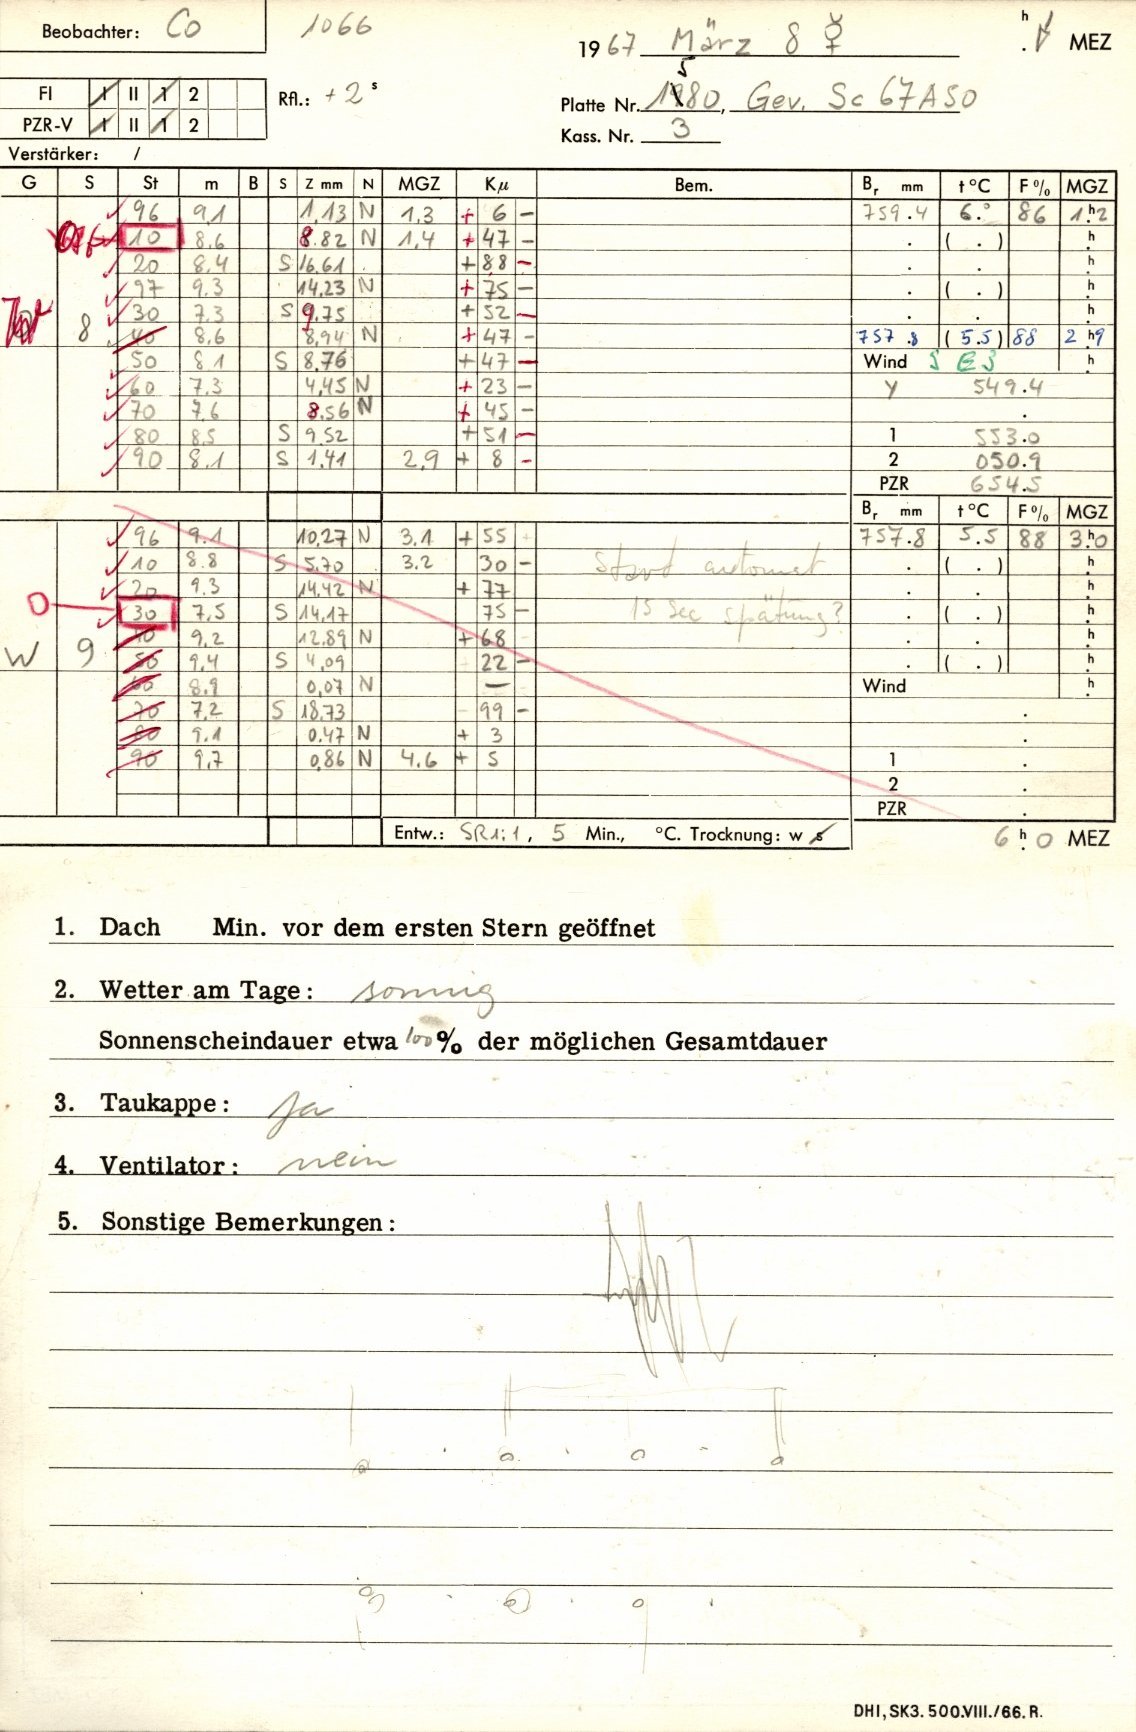 Beobachter: Co 1066 1967 März 8 ☿ h . MEZ
FI I II 1 2 Rfl.: +2 s 5
PZR-V I II 1 2 Platte Nr. 1980, Gev. Sc 67A50
Verstärker: / Kass. Nr. 3
G S St m B S Z mm N MGZ Kµ Bem. Br mm t°C F% MGZ
96 9,1 1,13 N 1,3 + 6 − 759.4 6.° 86 1.h2
10 8,6 8.82 N 1,4 + 47 − . ( . ) h
20 8,4 S 16,61 + 88 − . . h
97 9,3 14,23 N + 75 − . ( . ) h
30 7,3 S 9,75 + 52 − . . h
8 40 8,6 8,94 N + 47 − 757.8 (5.5) 88 2 h9
50 8,1 S 8,76 + 47 − Wind S h
60 7,3 4,45 N + 23 − Y 549.4
70 7,6 8.56 N + 45 − .
80 8,5 S 9,52 + 51 − 1 553.0
90 8,1 S 1,41 2,9 + 8 − 2 050.9
PZR 654.5
Br mm t°C F% MGZ
96 9,1 10,27 N 3.1 + 55 757.8 5.5 88 3.h0
10 8.8 S 5,70 3.2 30 − Start automat . ( . ) h
20 9.3 14,42 N + 77 . . h
0 30 7,5 S 14,17 75 − 15 sec spätung? . ( . ) h
40 9,2 12.89 N + 68 . . h
W 9 50 9,4 S 4,09 22 − . ( . ) h
60 8,9 0,07 N — Wind h
70 7,2 S 18,73 99 − .
80 9.1 0.47 N + 3 .
90 9,7 0,86 N 4.6 + 5 1 .
2 .
PZR .
Entw.: SR1:1, 5 Min., °C. Trocknung: w s 6 h 0 MEZ
1. Dach Min. vor dem ersten Stern geöffnet
2. Wetter am Tage: sonnig
Sonnenscheindauer etwa 100% der möglichen Gesamtdauer
3. Taukappe: ja
4. Ventilator: nein
5. Sonstige Bemerkungen:
DHI, SK3. 500.VIII./66. R.